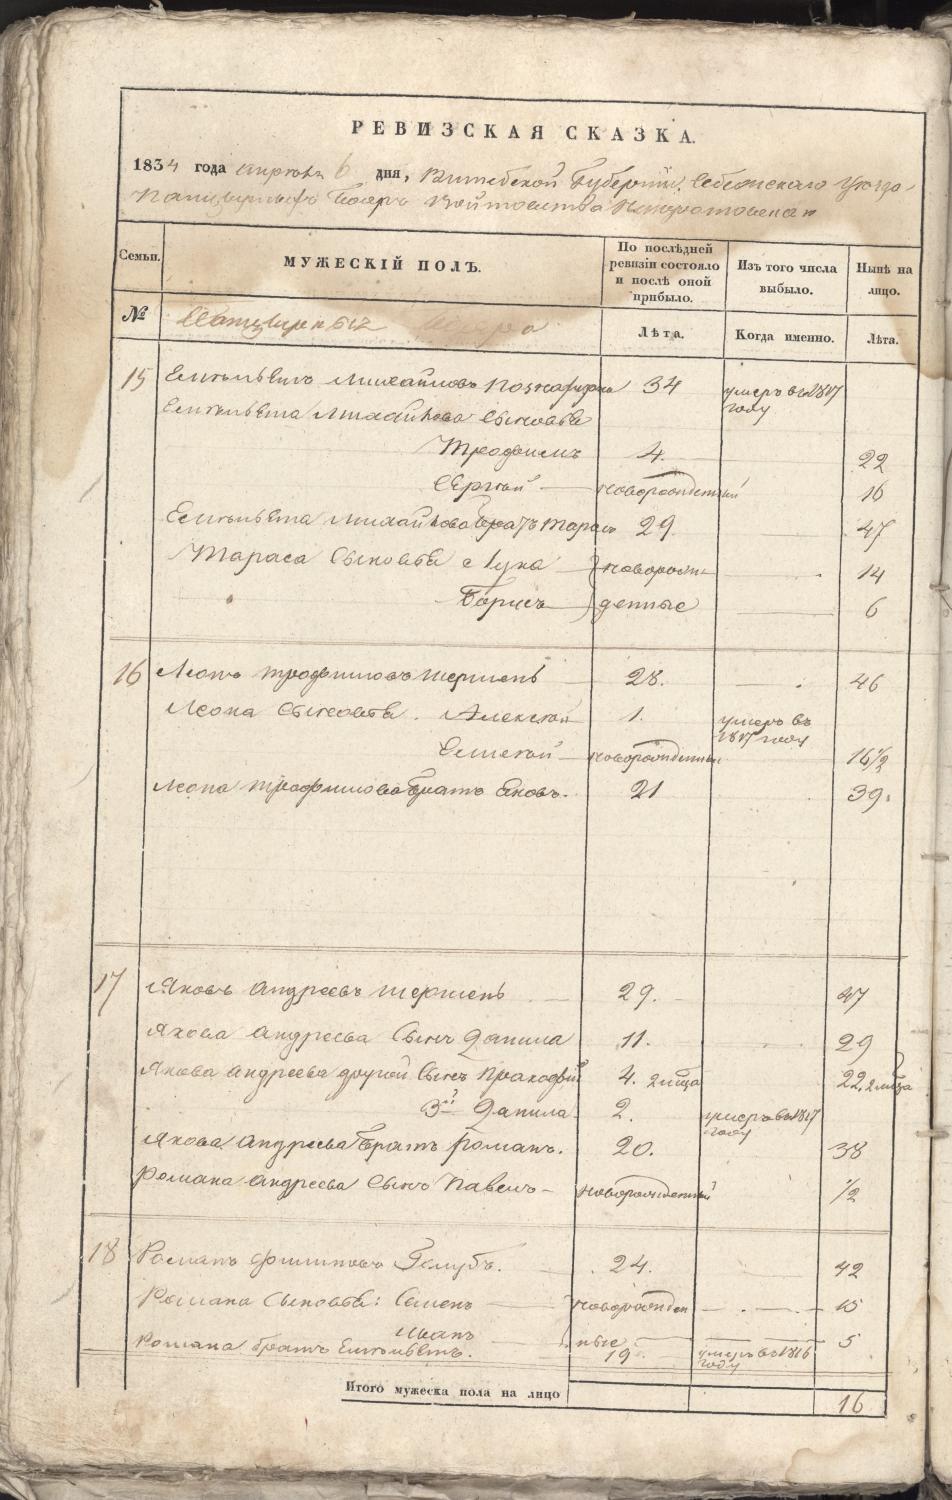 РЕВИЗСКАЯ СКАЗКА.
1834 года апреля 6 дня, Витебской Губернии, Себежскаго Уезда
Войтовства
Семьи.
МУЖЕСКІЙ ПОЛЪ.
По послѣдней ревизіи состояло и послѣ оной прибыло.
Изъ того числа выбыло.
Нынѣ на лицо.
№
Лѣта.
Когда именно.
Лѣта.
15 Емельянъ Михайловъ 34 умеръ въ 1817 году
Емельяна Михайлова сыновья
Трофимъ 4. 22
Сергей новорожденный 16
Емельяна Михайлова братъ Тарасъ 29. 47
Тараса сыновья Лука новорож- 14
Борисъ денные 6
16 Леонъ Трофимовъ Шершень 28. 46
Леона сыновья. Алексей 1. умеръ въ 1817 году
Семенъ новорожденный 16 1/2
Леона Трофимова братъ Яковъ. 21 39.
17 Яковъ Андреевъ Шершень 29. 47
Якова Андреева сынъ Данила 11. 29
Якова Андреева другой сынъ Прокофій 4. 22.
3й Данила 2. умеръ въ 1817 году
Якова Андреева братъ Романъ. 20. 38
Романа Андреева сынъ Павелъ новорожденный 1/2
18 Романъ Филиповъ Голубъ. 24. 42
Романа сыновья: Семенъ новорожден 15
Иванъ ные 5
Романа братъ Емельянъ. 19 умеръ въ 1816 году
Итого мужеска пола на лицо 16